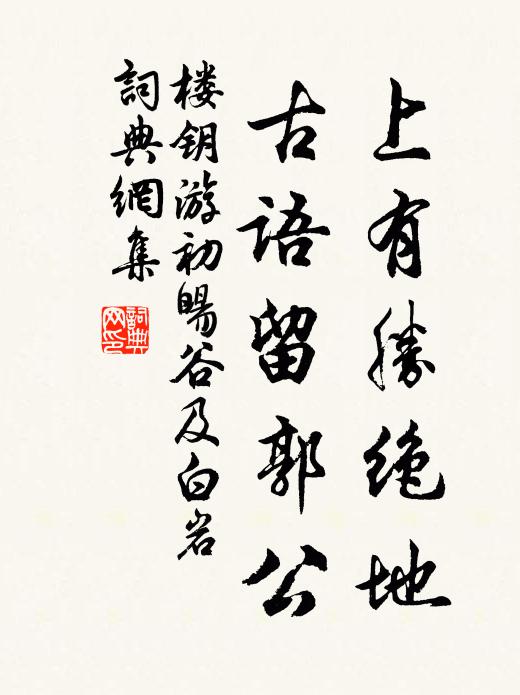 上有勝絶地
古語留郭公
楼钥游初暘谷及白岩
詞典網集
詞典网印